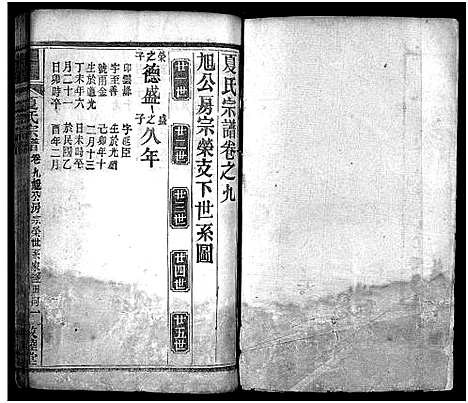 夏氏宗譜卷之九
旭公房宗榮支下世系圖
廿一世
廿二世
廿三世
廿四世
廿五世
榮之子
德盛
盛之子
久年
字至善
號雨金
生於道光
丁未年六
月二十一
日卯時卒
字臣
生於光緒
己卯年十
二月十三
日未時卒
於民國乙
酉年二月
夏氏宗譜
卷九
旭公房宗榮世系